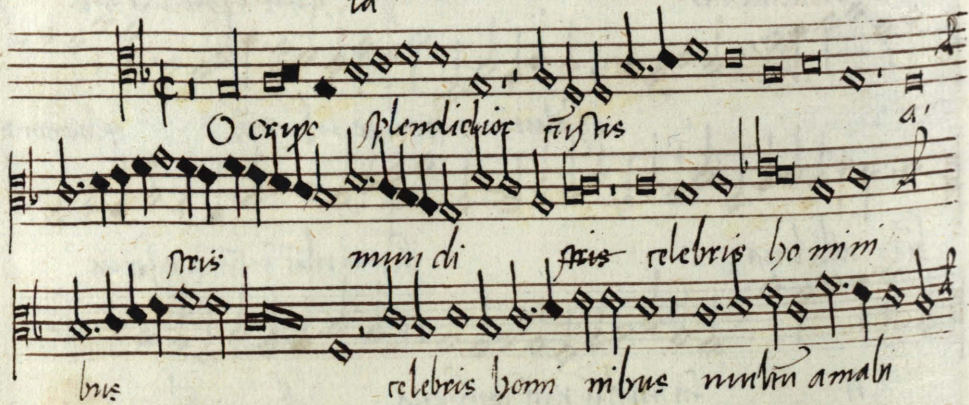 O crux splendidior cunctis a
stris mundi celebris homini
bus celebris hominibus multum amabi